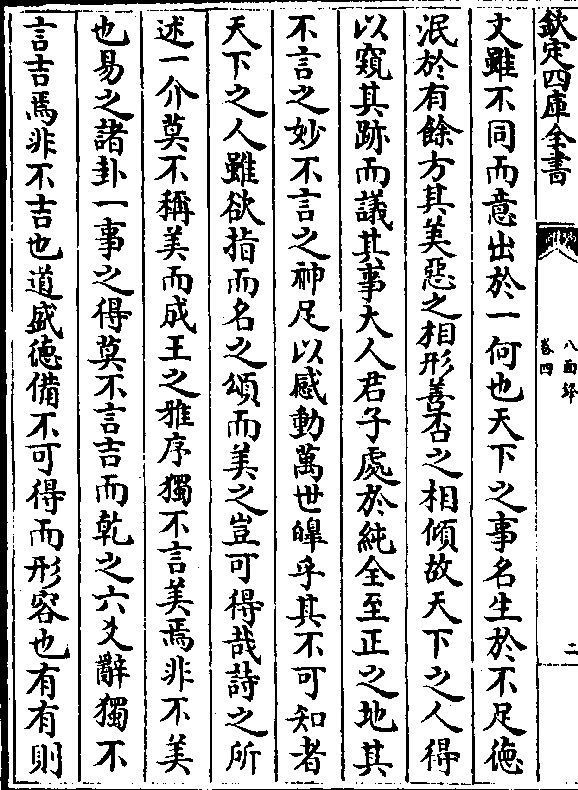 欽定四庫全書
八面鋒
卷四
二
文雖不同而意出於一何也天下之事名生於不足德
泯於有餘方其美惡之相形善否之相傾故天下之人得
以窺其跡而議其事大人君子處於純全至正之地其
不言之妙不言之神足以感動萬世皥乎其不可知者
天下之人雖欲指而名之頌而美之豈可得哉詩之所
述一介莫不稱美而成王之雅序獨不言美焉非不美
也易之諸卦一事之得莫不言吉而乾之六爻辭獨不
言吉焉非不吉也道盛德備不可得而形容也有有則